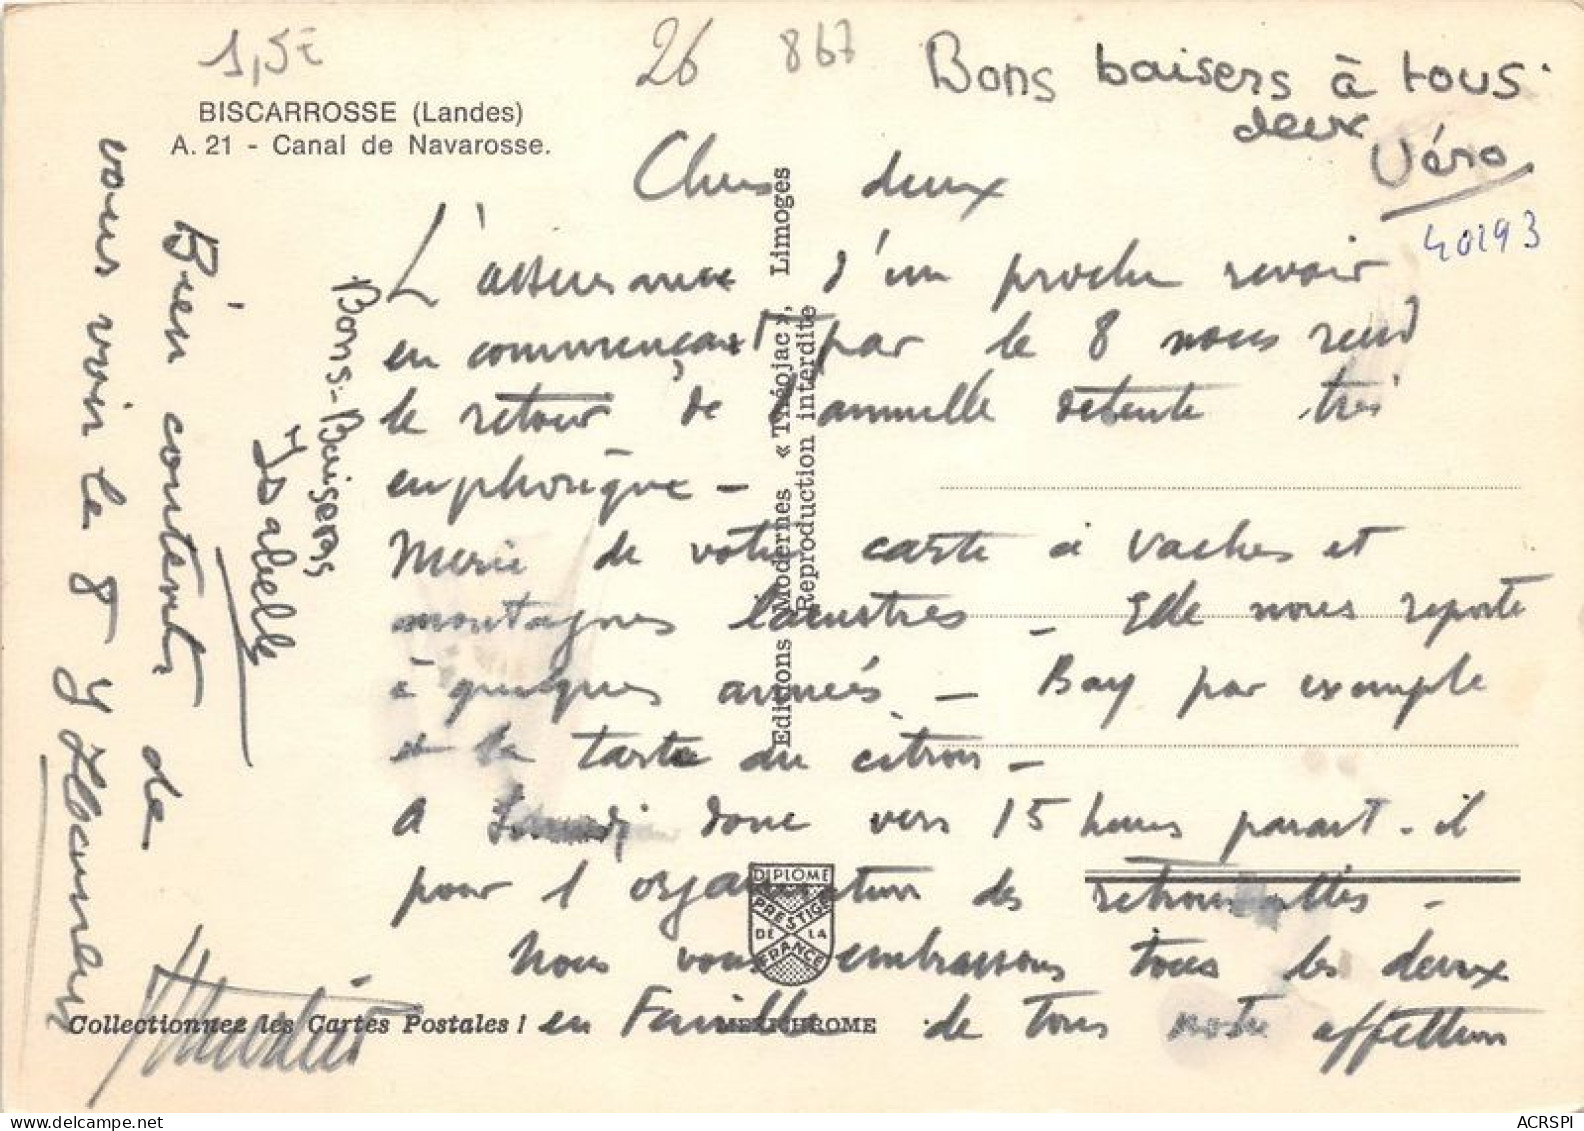 1,5€
26
867
BISCARROSSE (Landes)
A. 21 - Canal de Navarosse.
Bons baisers à tous
deux
Véro
40293
Chers deux
L'assurance d'un proche revoir
en commençant par le 8 nous rend
le retour de l'annuelle détente très
euphorique -
Merci de votre carte à vaches et
montagnes lacustres - Elle nous reporte
à quelques années - Bay par exemple
et la tarte au citron -
A donc vers 15 heures parait-il
pour l'organisation des retrouvailles -
Nous vous embrassons tous les deux
en Famille de tous notre affection
Bons Baisers
Isabelle
Bien content de
vous voir le 8
Editions Modernes « Théojac », Limoges
Reproduction interdite
DIPLOME
PRESTIGE
DE LA
FRANCE
Collectionnez les Cartes Postales !
MEXICHROME
ACRSPI